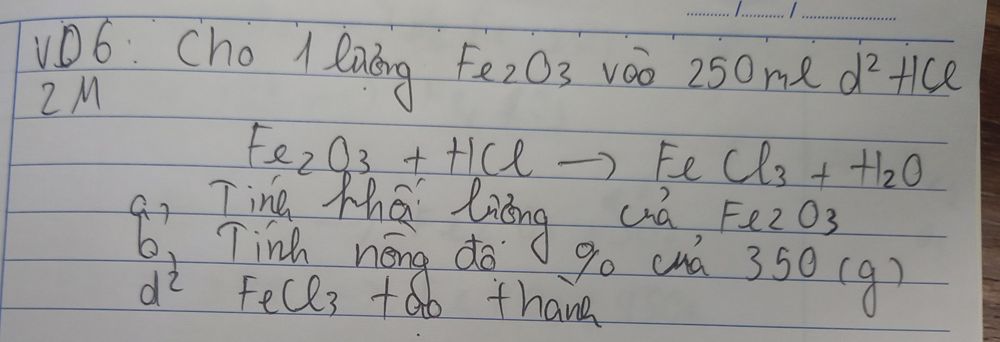 VD6: Cho 1 lượng Fe2O3 vào 250ml d² HCl
2M
Fe2O3 + HCl → FeCl3 + H2O
a, Tính khối lượng của Fe2O3
b, Tính nồng độ % của 350(g)
d² FeCl3 tạo thành